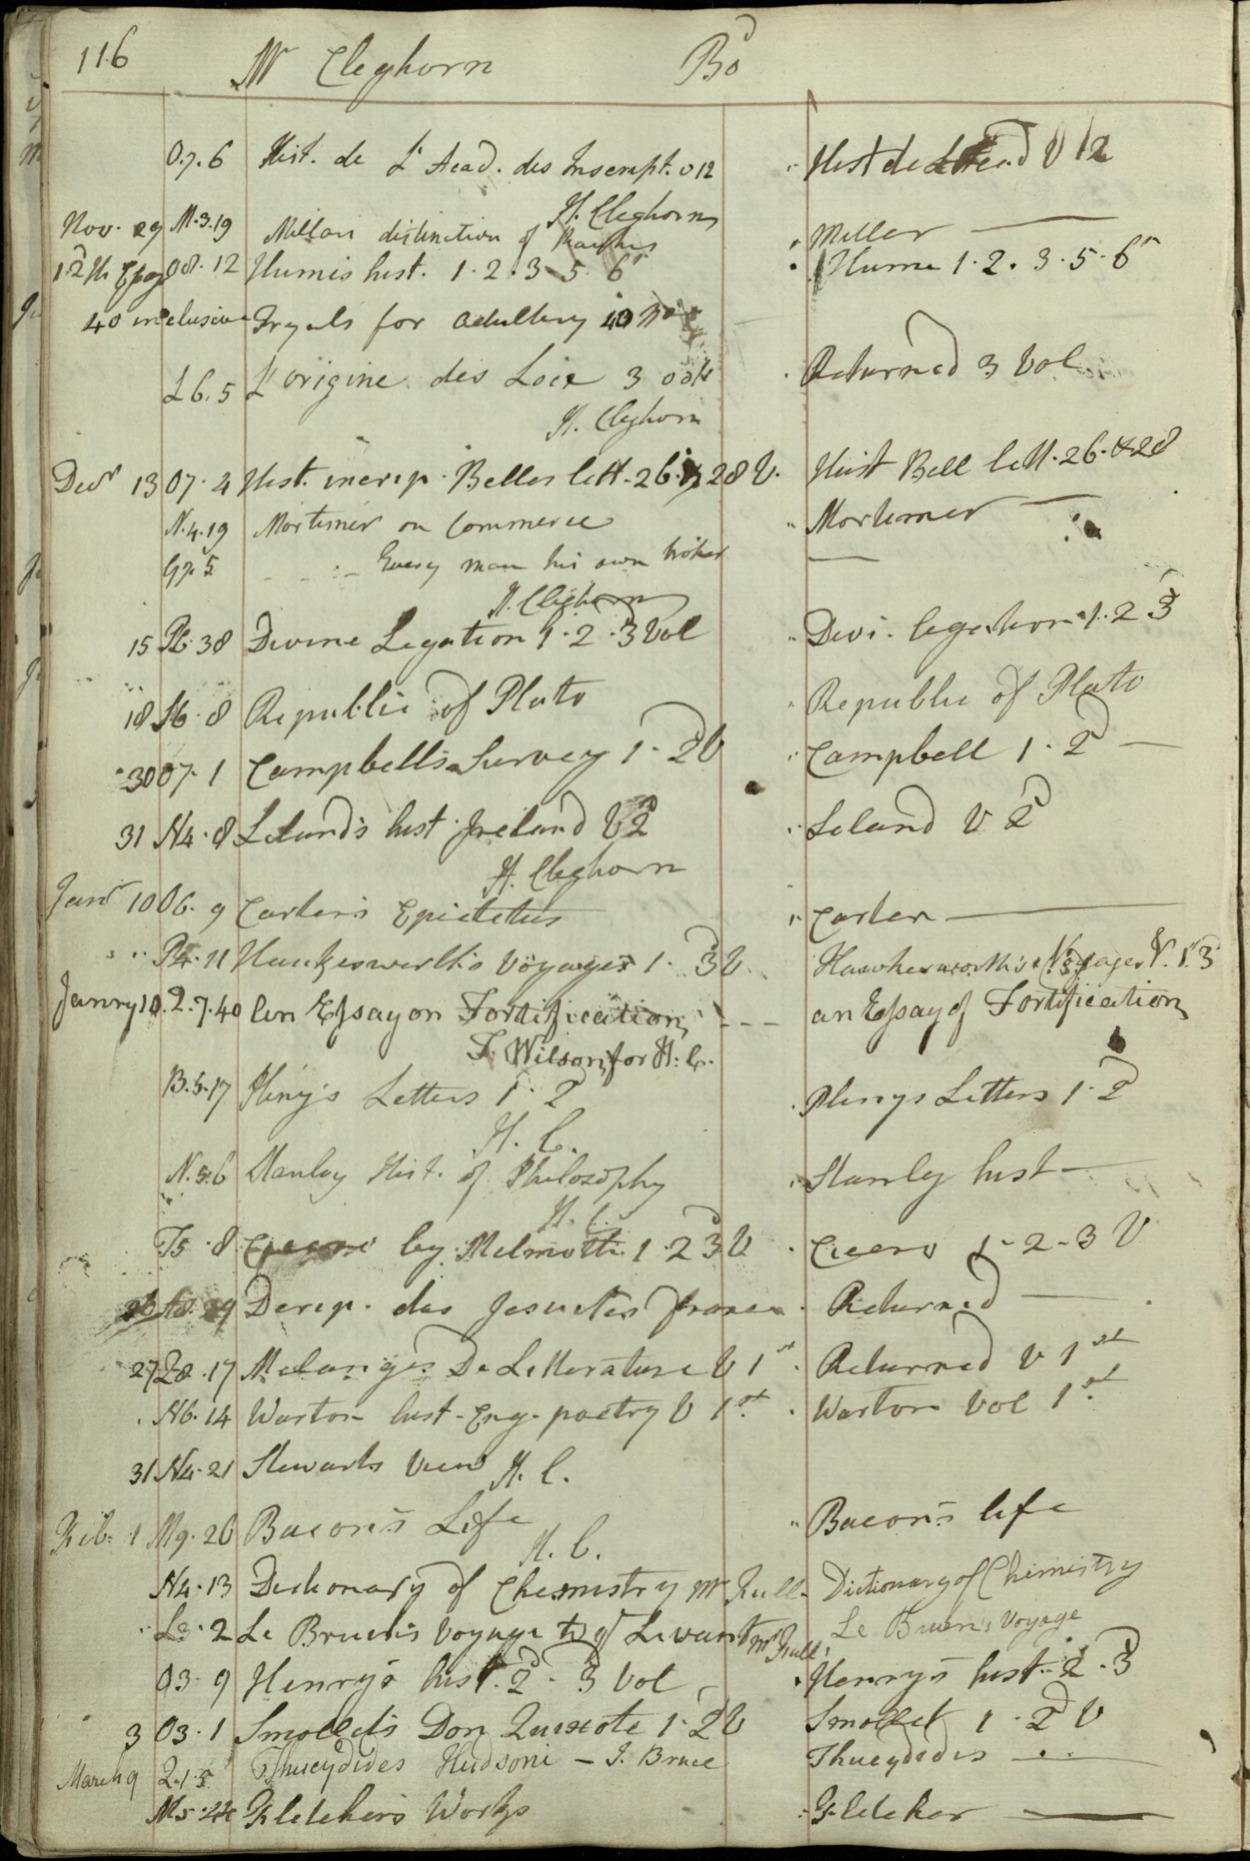 116 Mr Cleghorn Bd
O.7.6 Hist. de L'Acad. des Inscript. v 12 Hist de v 12
H. Cleghorn
Nov. 29 M.3.19 Millar distinction of Ranks Miller
O8.12 Humes hist. 1.2.3.5.6 Hume 1.2.3.5.6
40 inclusive Tryals for adultery
L6.5 L'origine des Loix 3 vols Returned 3 Vol
H. Cleghorn
Decr 13 O7.4 Hist. inscrip. Belles lett. 26. & 28 V. Hist Bell lett. 26. & 28
N.4.19 Mortimer on Commerce Mortimer
G7.5 Every man his own broker
H. Cleghorn
15 P6.38 Divine Legation 1.2.3 Vol Divi. legation 1.2 3
18 S6.8 Republic of Plato Republic of Plato
30 O7.1 Campbells Survey 1.2d V Campbell 1.2d
31 N4.8 Lelands hist. Ireland V 2d Leland V 2d
H. Cleghorn
Janr 10 O6.9 Carter's Epictetus Carter
P4.11 Hawkesworth's Voyages 1. 3d V. Hawkesworth's Voyages V. 1. 3
Janry 10. 2.7.40 An Essay on Fortification an Essay of Fortification
T. Wilson, for H. C.
B.5.17 Pliny's Letters 1.2 Plinys Letters 1.2d
H. C.
N.5.6 Stanley Hist. of Philosophy Stanly hist
H. C.
T5.8 Cicero by Melmoth 1.2 3d V Cicero 1-2-3 V
26 29 Descrip. des Jesuites Returned
27 Z8.17 Melanges De Litterature V 1st Returned V 1st
N6.14 Warton hist. Eng. poetry V 1st. Warton Vol 1st
31 N4.21 Stewarts View H. C.
Feb. 1 M9.26 Bacon's Life Bacon's life
H. C.
N4.13 Dictionary of Chemistry Mr Dictionary of Chimistry
L3.2 Le Bruen's Voyage to Levant Mr Le Bruen's Voyage
O3.9 Henry's hist. 2d. 3d Vol Henry's hist. 2.3d
3 O3.1 Smollets Don Quixote 1.2d V Smollet 1.2d V
March 9 2.1.5 Thucydides Hudsoni - J. Bruce Thucydides
M5.44 Fletcher's Works Fletcher